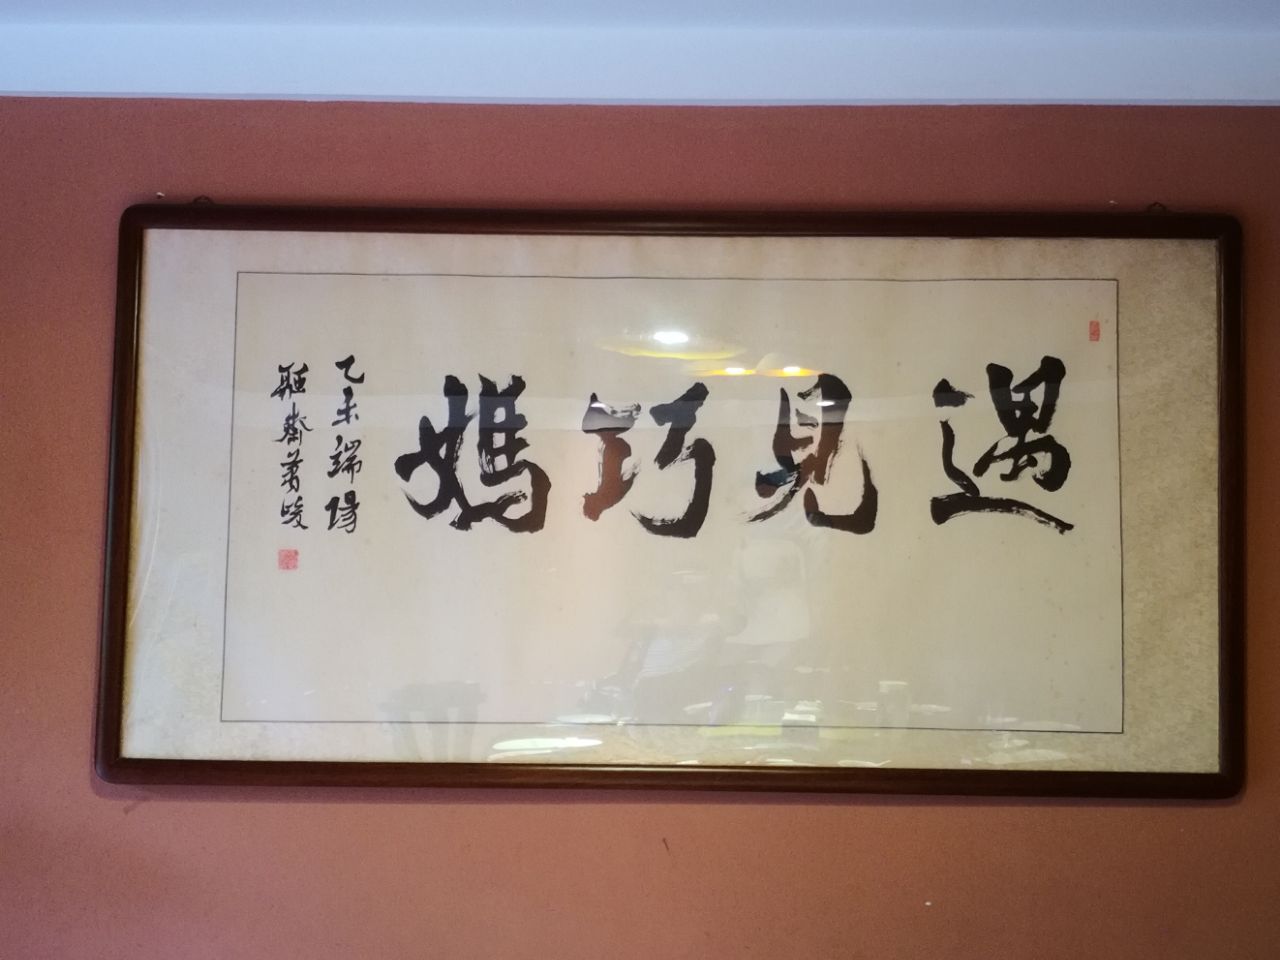 遇見巧媽
乙未端陽